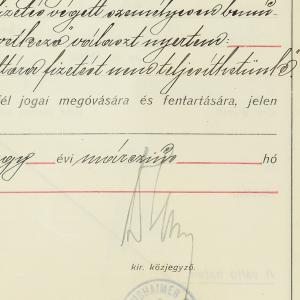 fizetés végett személyesen bemu-
vetkező választ nyertem:
ltára fizetést nem teljesíthetünk"
fél jogai megóvására és fentartására, jelen
egy évi márczius hó
kir. közjegyző.